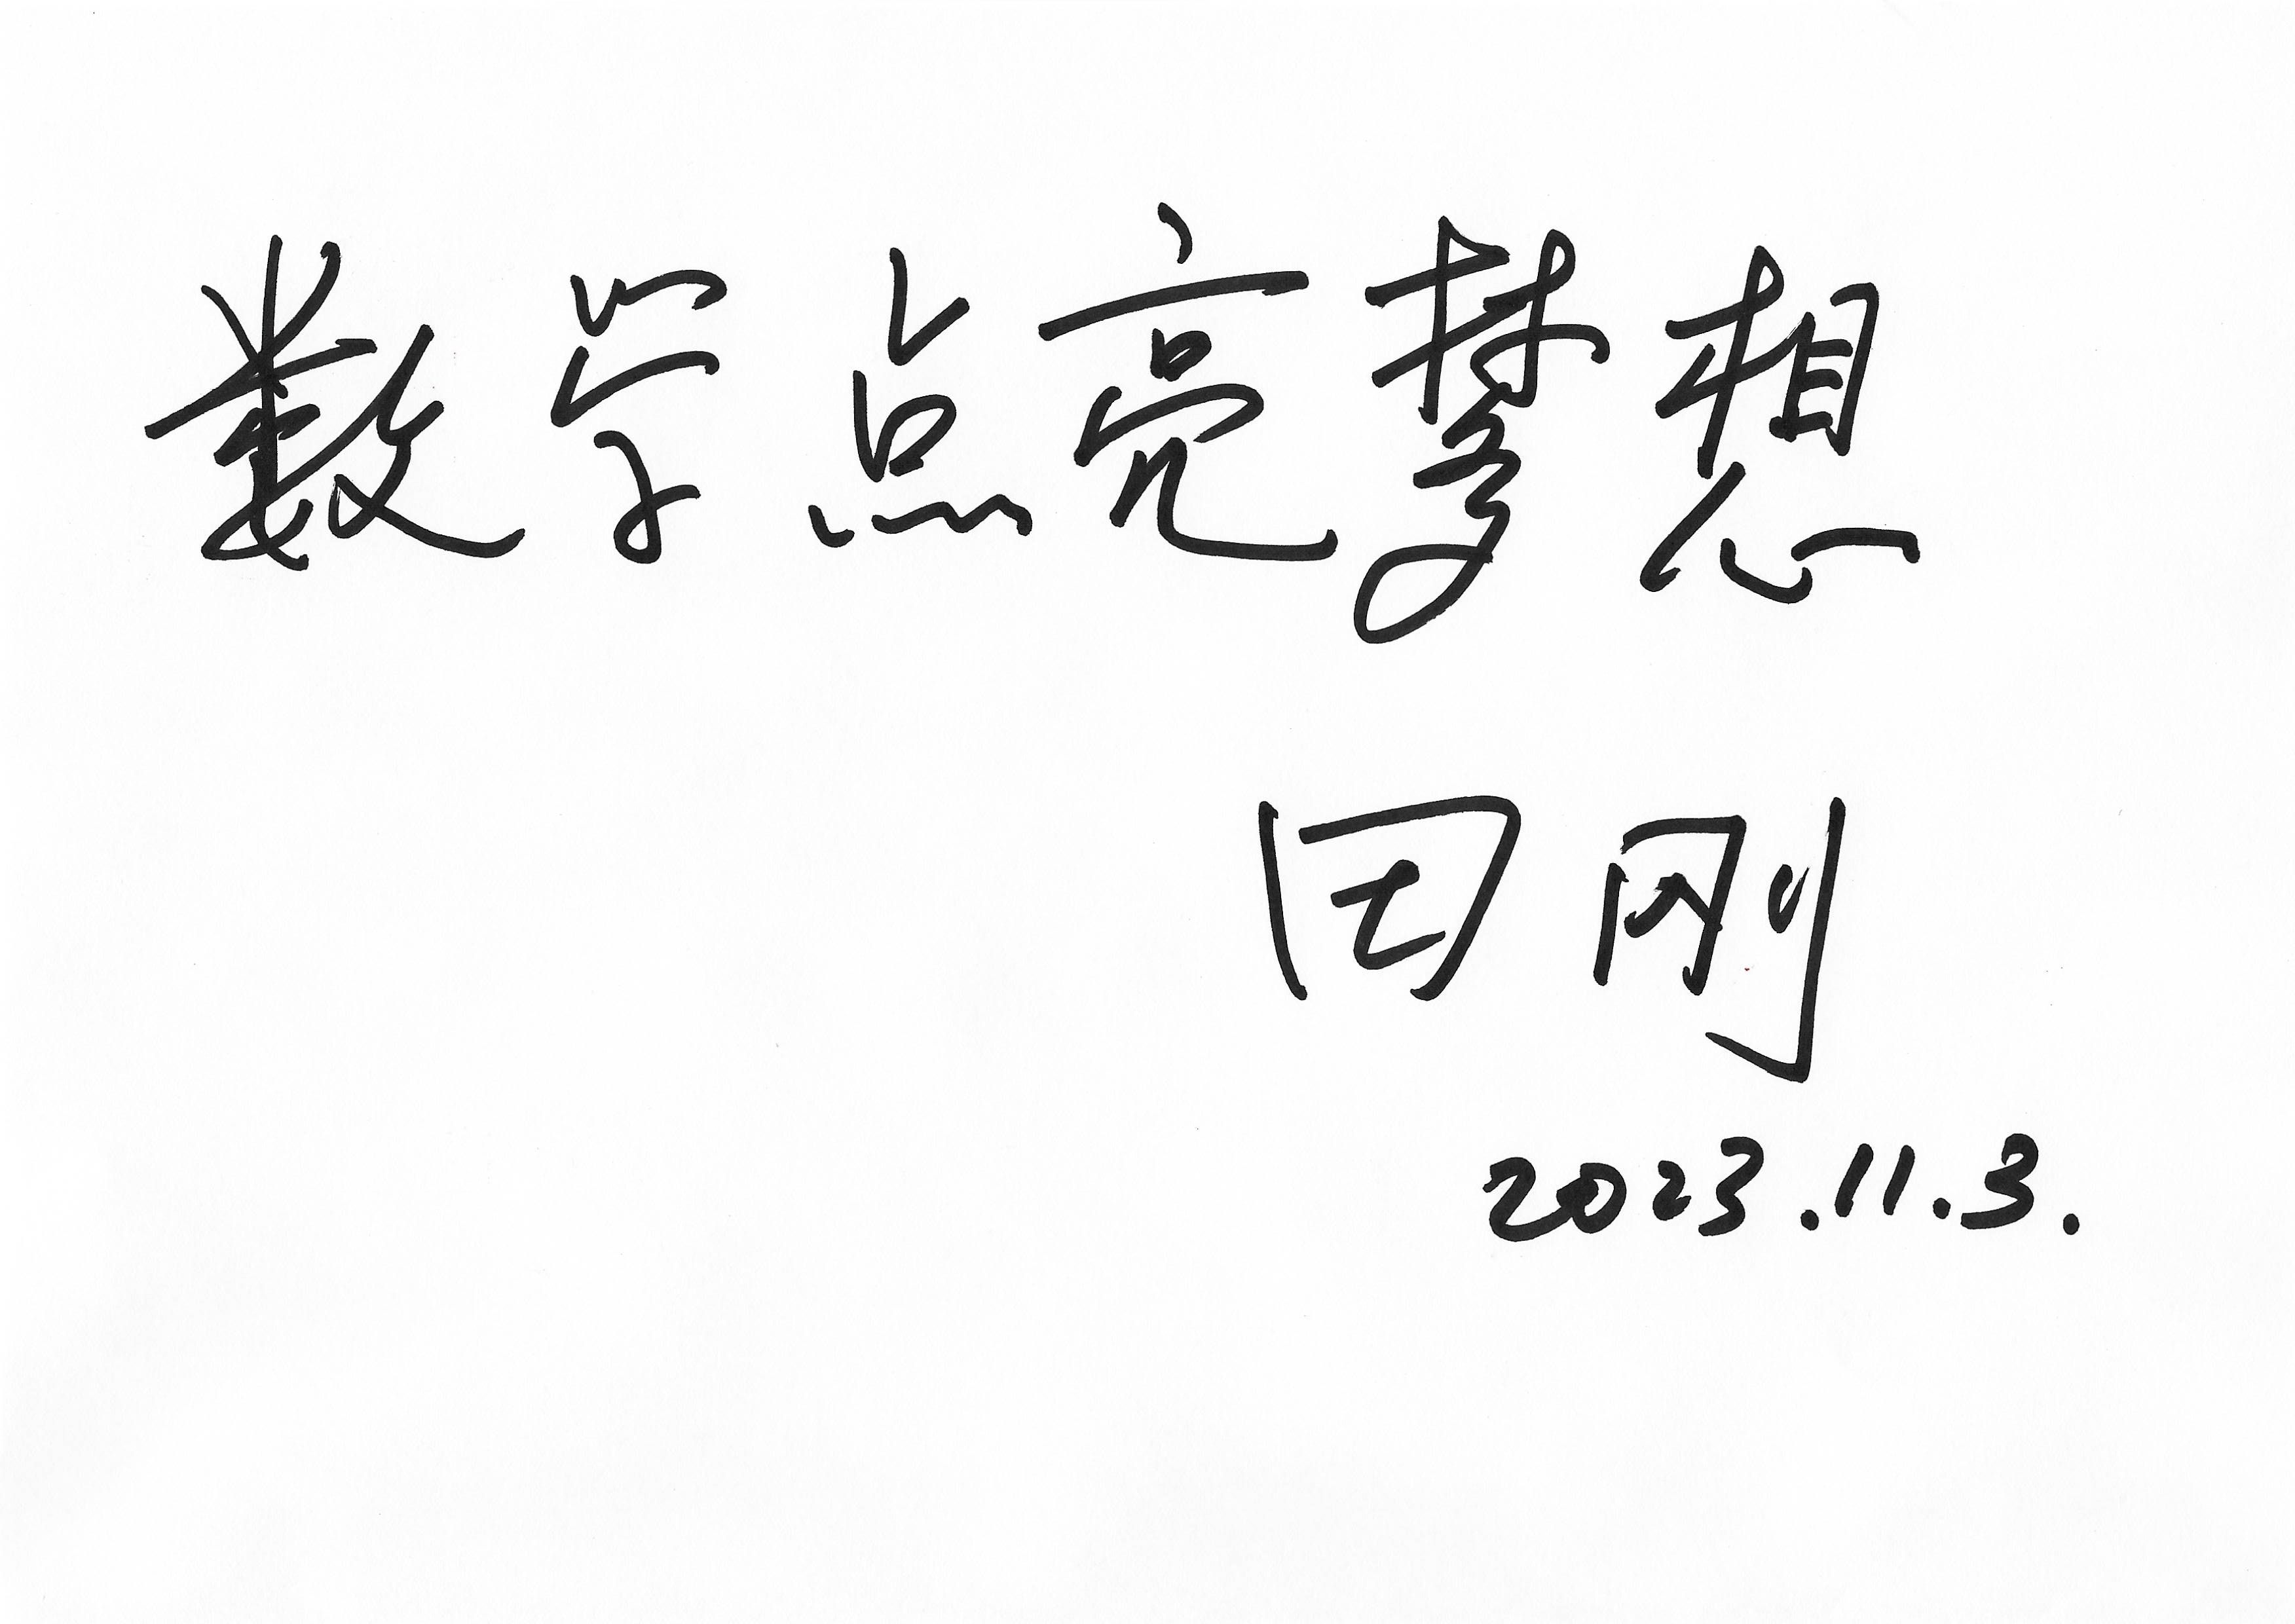 数学点亮梦想
田刚
2023.11.3.